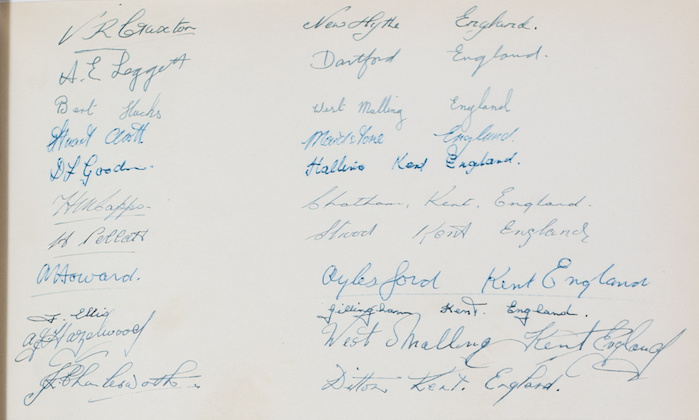 V R Cruxton New Hythe England.
A. E Leggett Dartford England.
Bert Hucks West Malling England
Stuart Maidstone England.
D F Halling Kent England.
Chatham, Kent. England.
H Pellatt Strood Kent England
A Howard. Aylesford Kent England
F. Ellis Gillingham Kent. England.
A J Hazelwood West Malling Kent England
J. Charlesworth Ditton Kent. England.